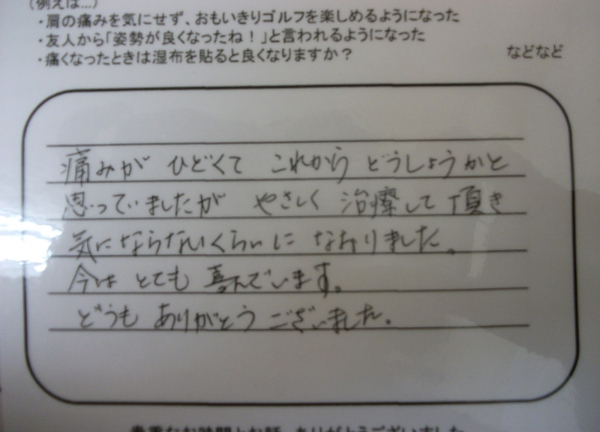 (例えば…)
・肩の痛みを気にせず、おもいきりゴルフを楽しめるようになった
・友人から「姿勢が良くなったね！」と言われるようになった
・痛くなったときは湿布を貼ると良くなりますか？ などなど
痛みが ひどくて これから どうしょうかと
思っていましたが やさしく 治療して 頂き
気にならないくらいに なおりました。
今は とても 喜んでいます。
どうも ありがとう ございました。
貴重なお時間とお話、ありがとうございました